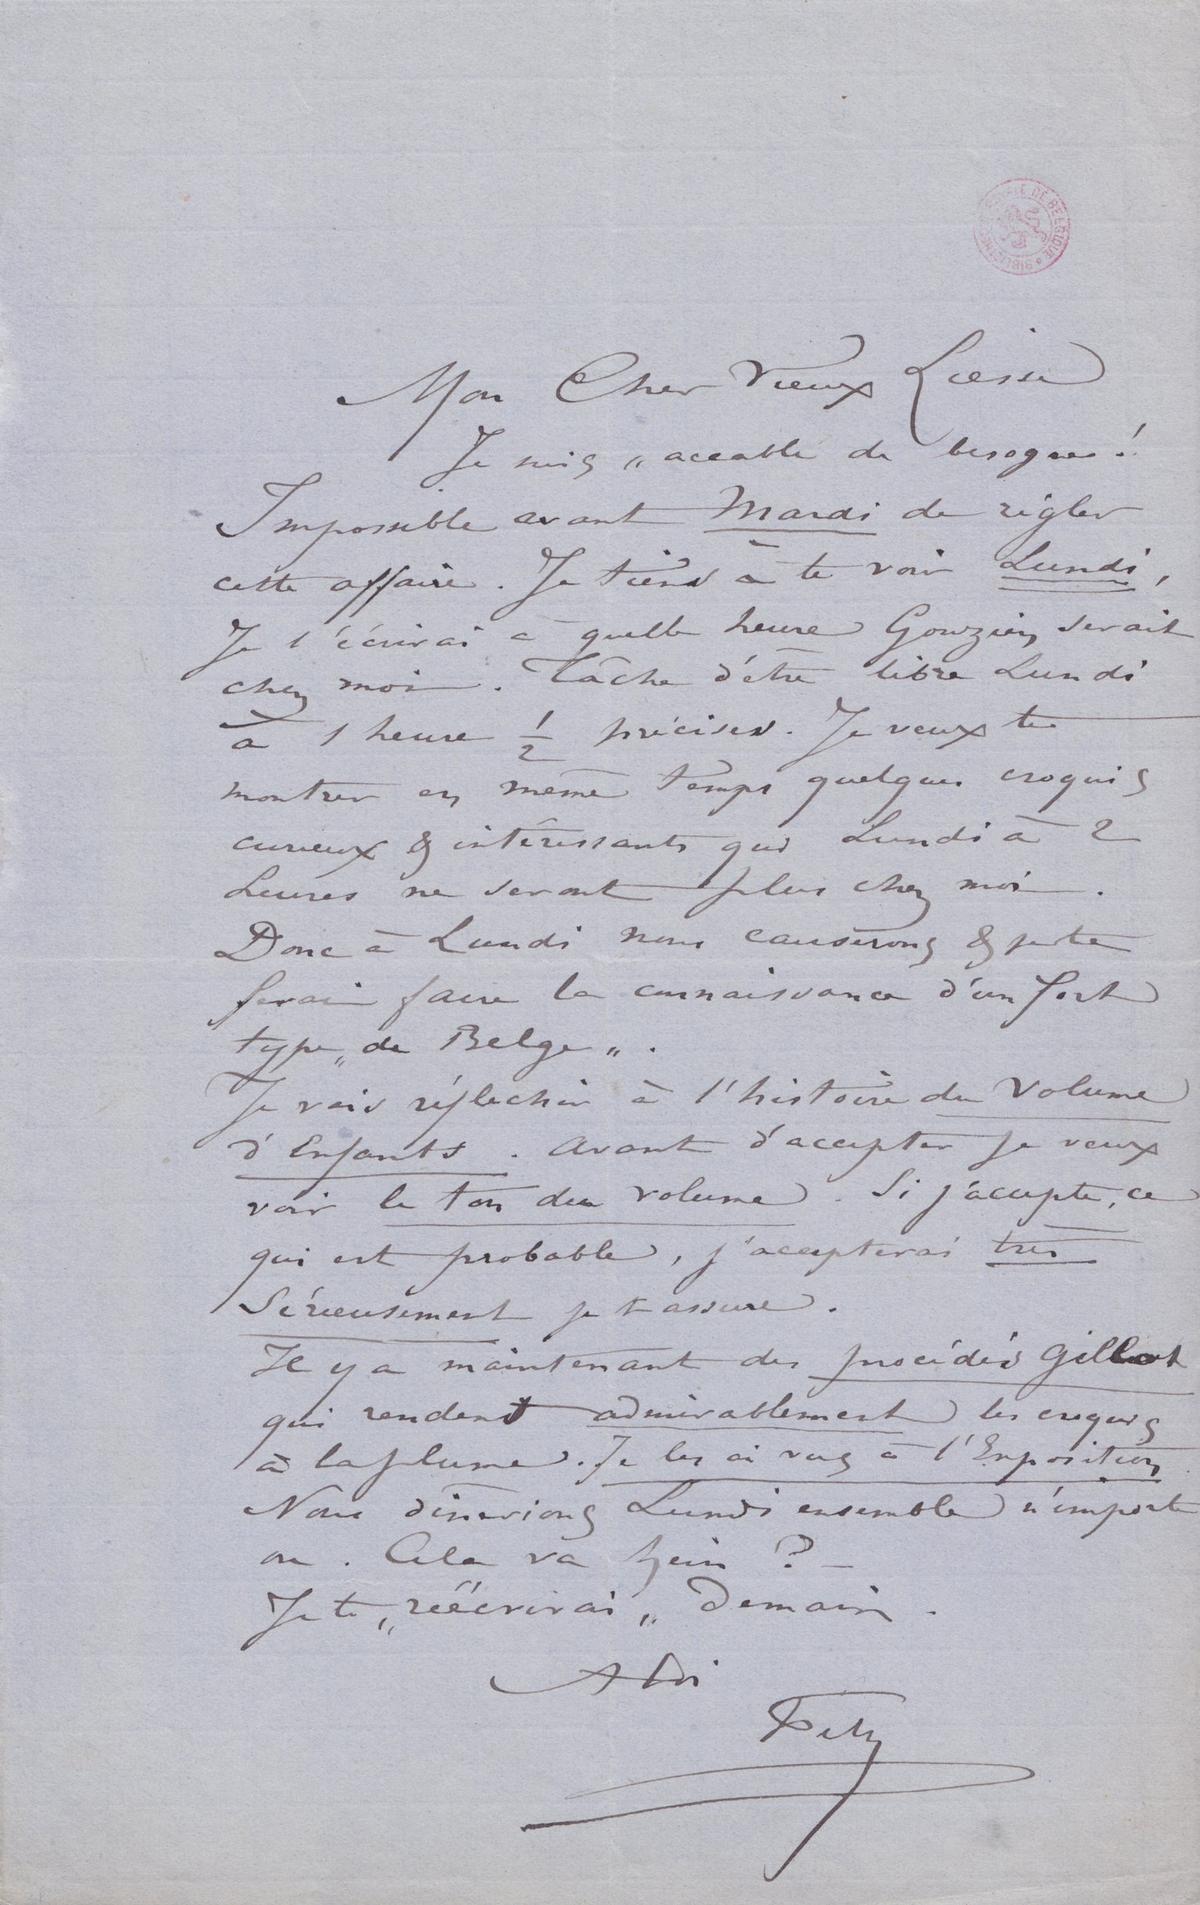 BIBLIOTHEQUE ROYALE DE BELGIQUE
Mon Cher Vieux Liesse
Je suis „ accablé de besogne !
Impossible avant Mardi de régler
cette affaire. Je tiens à te voir Lundi,
Je t'écrirai à quelle heure Gouzien serait
chez moi. Tâche d'être libre Lundi
à 1 heure 1/2 précises. Je veux te
montrer en même temps quelques croquis
curieux & intéressants qui Lundi à 2
heures ne seront plus chez moi.
Donc à Lundi nous causerons & je te
ferai faire la connaissance d'un fort
type „ de Belge „.
Je vais réflechir à l'histoire du Volume
d'Enfants. Avant d'accepter je veux
voir le ton du volume. Si j'accepte, ce
qui est probable, j'accepterai très
Sérieusement je t'assure.
Il y a maintenant des procédés Gillot
qui rendent admirablement les croquis
à la plume. Je les ai vus à l'Exposition
Nous dinerions Lundi ensemble n'importe
ou. Cela va hein ? –
Je te „ réécrirai „ Demain.
A toi
Fély